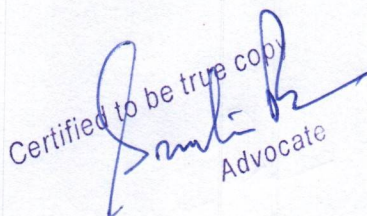 Certified to be true copy
Advocate